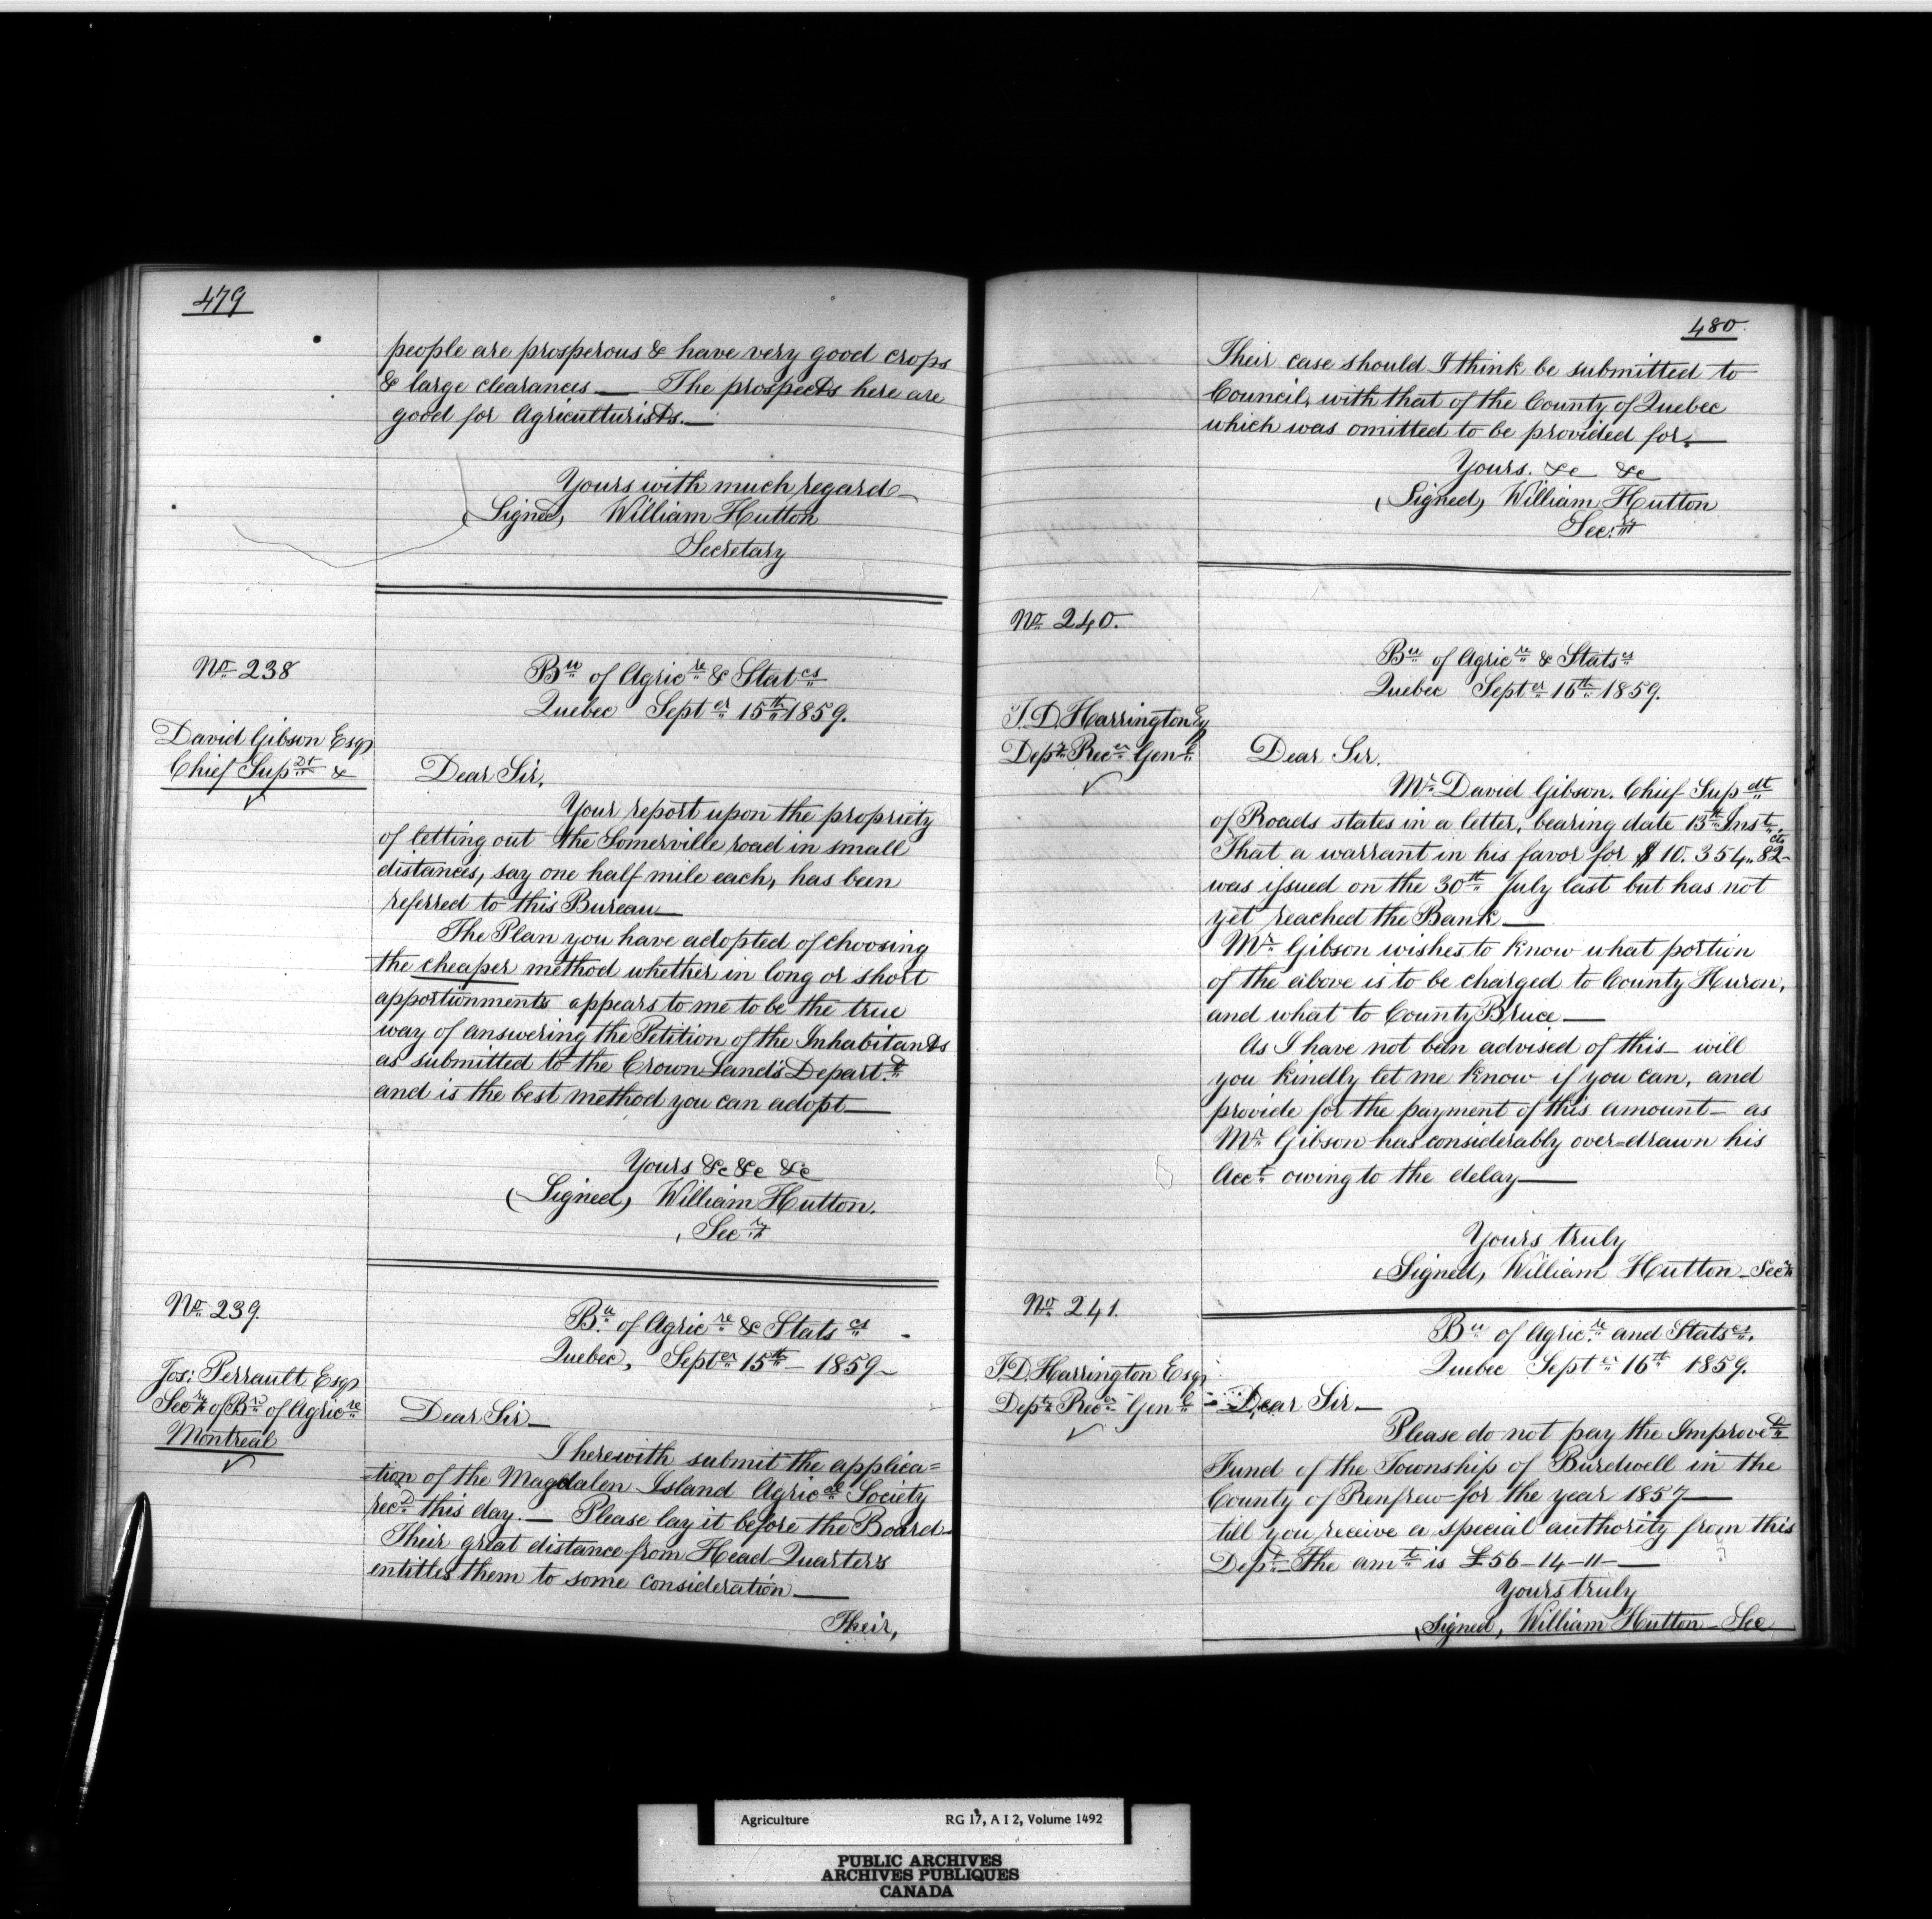 479
people are prosperous & have very good crops
& large clearances — The prospects here are
good for Agriculturists. —
Yours with much regard —
(Signed) William Hutton
Secretary
No 238
Bu of Agricre & Statcs
Quebec Septer 15th 1859.
David Gibson Esqr
Chief Supdt &
Dear Sir,
Your report upon the propriety
of letting out the Somerville road in small
distances, say one half mile each, has been
referred to this Bureau —
The Plan you have adopted of choosing
the cheaper method whether in long or short
apportionments appears to me to be the true
way of answering the Petition of the Inhabitants
as submitted to the Crown Land's Depart.t
and is the best method you can adopt —
Yours &c &c &c
(Signed) William Hutton.
Secry
No 239.
Bu of Agricre & Statscs
Quebec, Septer 15th — 1859 —
Jos: Perrault Esqr
Secry of Brd of Agricre
Montreal
Dear Sir —
I herewith submit the applica=
=tion of the Magdalen Island Agrical Society
recd this day. — Please lay it before the Board —
Their great distance from Head Quarters
entitles them to some consideration —
Their,
480.
Their case should I think be submitted to
Council, with that of the County of Quebec
which was omitted to be provided for. —
Yours. &c &c
(Signed) William Hutton
Sec:ry
No 240.
Bu of Agricre & Statscs
Quebec Septer 16th 1859.
T. D. Harrington Esq
Depy Recer Genl
Dear Sir.
Mr David Gibson. Chief Supdt
of Roads states in a letter, bearing date 13th Inst,
That a warrant in his favor for $10.354,,82 cts
was issued on the 30th July last but has not
yet reached the Bank —
Mr Gibson wishes to know what portion
of the above is to be charged to County Huron,
and what to County Bruce —
As I have not been advised of this — will
you kindly let me know if you can, and
provide for the payment of this amount — as
Mr Gibson has considerably over=drawn his
Acct owing to the delay —
Yours truly
(Signed) William Hutton — Secry
No 241.
Bu of Agric.re and Statscs.
Quebec Septer 16th 1859.
T. D. Harrington Esqr
Depy Recer Genl
Dear Sir. —
Please do not pay the Improvet
Fund of the Township of Burdwell in the
County of Renfrew for the year 1857 —
till you receive a special authority from this
Dept — The amt is £56-14-11 —
Yours truly
(Signed) William Hutton — Sec
Agriculture RG 17, A I 2, Volume 1492
PUBLIC ARCHIVES
ARCHIVES PUBLIQUES
CANADA